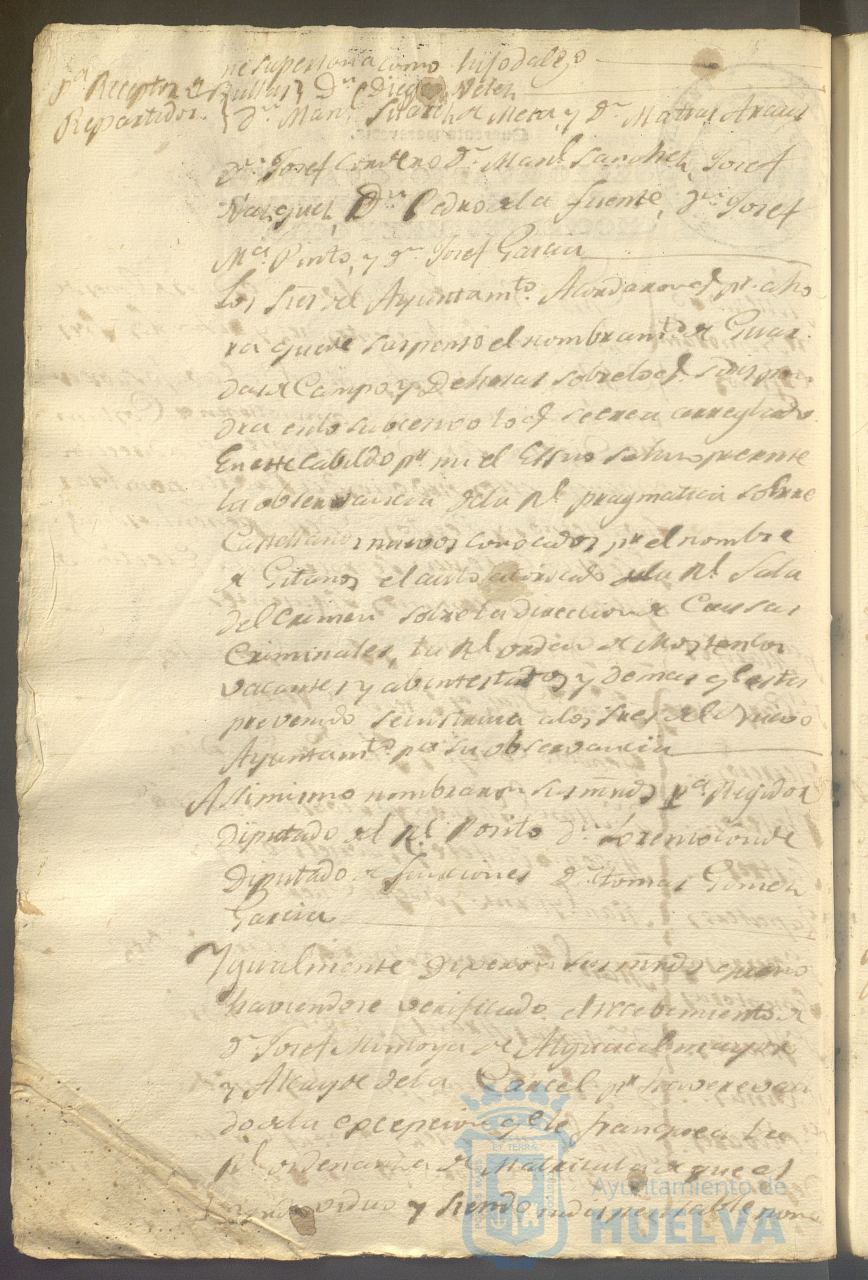 ne su persona como hijodalgo
pa. Receptor de Bullas } Dn. Diego Velez
Repartidor. } Dn. Manl. Suarez de Mera, y Dn. Matias
Dn. Josef Cordero Dn. Manl. Sanchez, Josef
Vazquez, Dn. Pedro de la Fuente, Dn. Josef
Ma. Pinto, y Dn. Josef Garcia
Los Sres. del Ayuntamto. Acordaron q. pr. aho
ra quede suspenso el nombramto. de Guar
das de Campo y Dehesas sobre lo q.
dra en lo subcesivo lo q. se crea arreglado
En este Cabildo pr. mi el Essno se hizo presente
la observancia de la Rl. pragmatica sobre
Castellanos nuevos conocados pr. el nombre
de Gitanos el auto acordado de la Rl. Sala
del Crimen sobre la direccion de Causas
Criminales, la Rl. orden de Mostrencos
vacantes y abintestatos y demas q. esta
prevenido se instruia a los Sres. del Nuevo
Ayuntamto. pa. su observancia
Asimismo nombraron sus mrds. pa. Regidor
Diputado del Rl. Posito Dn. Lorenzo Conde
Diputado de funciones Dn. Tomas Gomez
Garcia
Ygualmente dixeron sus mrds. q. no
haviendose verificado el recebimiento de
Dn. Josef Montoya de Alguacil mayor
y Alcayde de la Carcel pr.
do de la excepcion q. le franquea la
Rl. ordenanza de Matricula de que es
individuo y siendo indispensable
ET TERRA
Ayuntamiento de
HUELVA